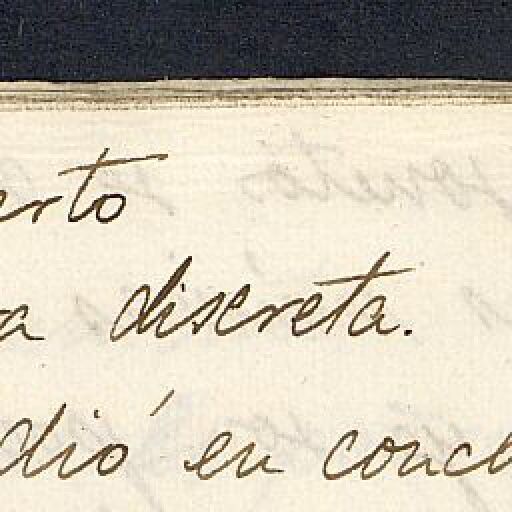 erto
a discreta.
dió en concl